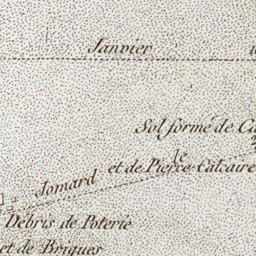 Janvier
Sol formé de
et de Pierre Calcaire
le
Jomard
Débris de Poterie
et de Briques